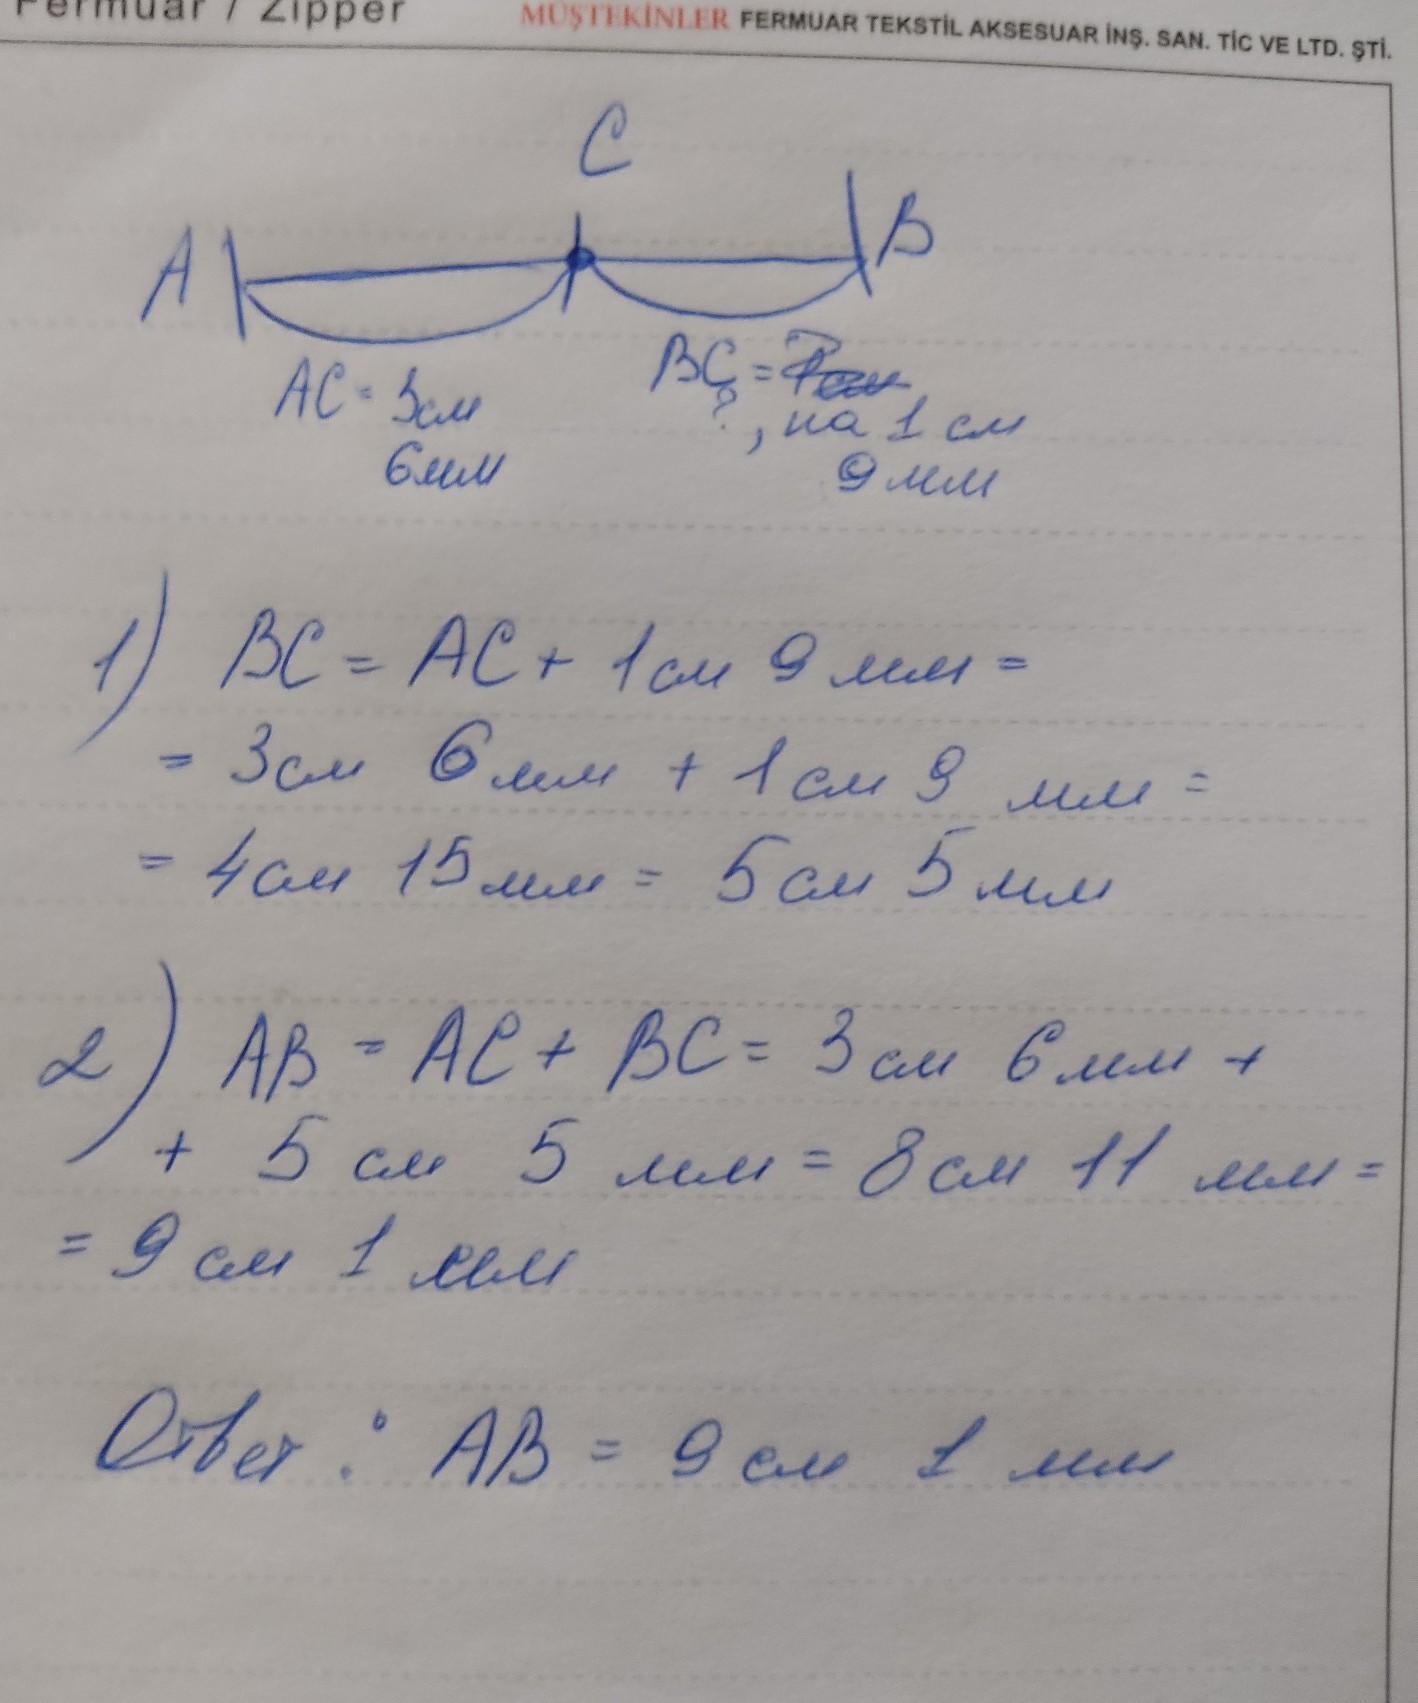 Fermuar / Zipper MÜŞTEKİNLER FERMUAR TEKSTİL AKSESUAR İNŞ. SAN. TİC VE LTD. ŞTİ.
C
A B
AC = 3см BC =
?, на 1 см
6мм 9 мм
1) BC = AC + 1 см 9 мм =
= 3см 6 мм + 1 см 9 мм =
= 4см 15 мм = 5 см 5 мм
2) AB = AC + BC = 3 см 6 мм +
+ 5 см 5 мм = 8 см 11 мм =
= 9 см 1 мм
Ответ : AB = 9 см 1 мм